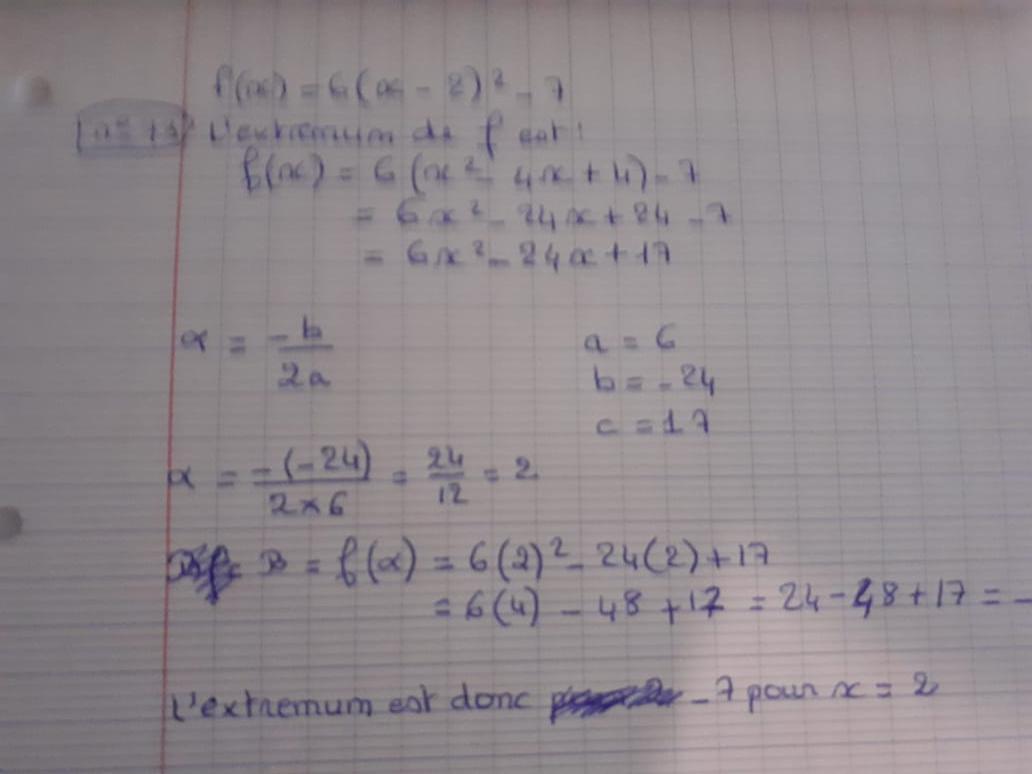 f(x) = 6(x - 2)² - 7
L'extremum de f est :
f(x) = 6(x² - 4x + 4) - 7
= 6x² - 24x + 24 - 7
= 6x² - 24x + 17
α = -b/2a
a = 6
b = -24
c = 17
α = -(-24)/2×6 = 24/12 = 2
β = f(α) = 6(2)² - 24(2) + 17
= 6(4) - 48 + 17 = 24 - 48 + 17 = -
L'extremum est donc -7 pour x = 2